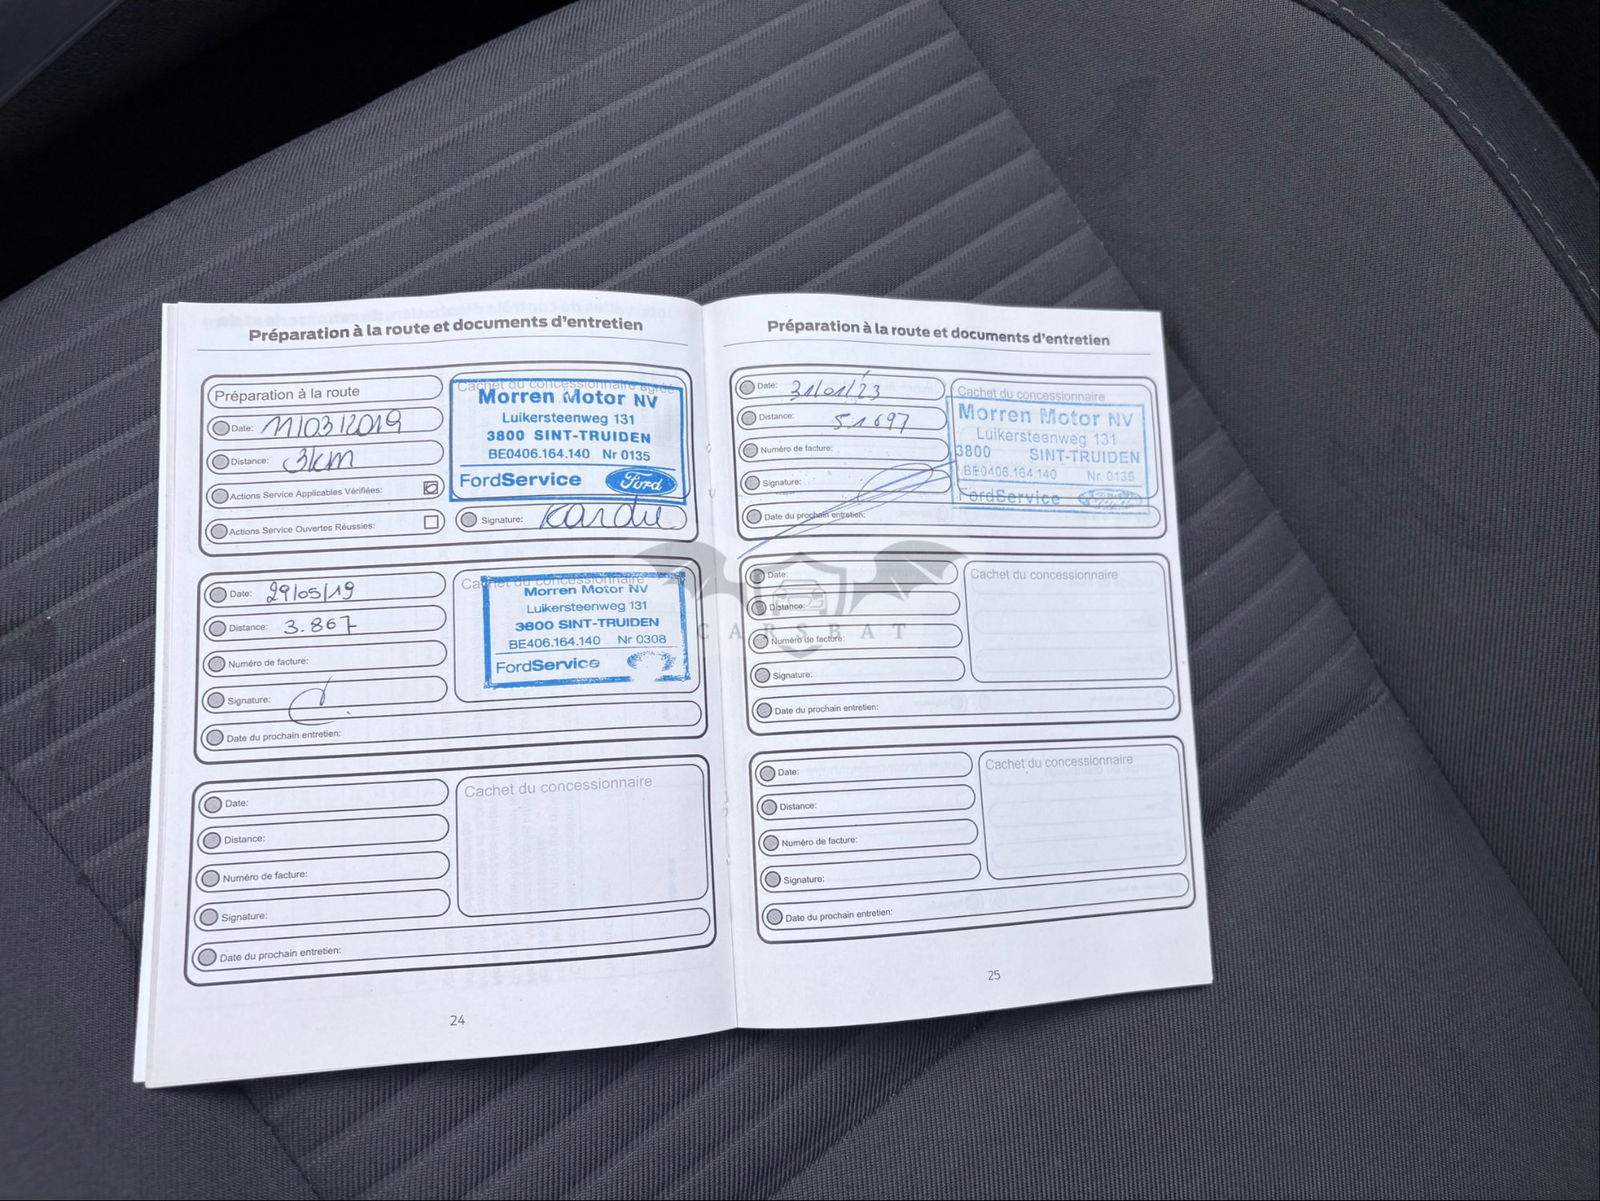 Préparation à la route et documents d'entretien
Préparation à la route
Date: 11/03/2019
Distance: 3km
Actions Service Applicables Vérifiées:
Actions Service Ouvertes Réussies:
Cachet du concessionnaire agréé
Morren Motor NV
Luikersteenweg 131
3800 SINT-TRUIDEN
BE0406.164.140 Nr 0135
FordService Ford
Signature:
Date: 29/05/19
Distance: 3.867
Numéro de facture:
Signature:
Date du prochain entretien:
Cachet du concessionnaire
Morren Motor NV
Luikersteenweg 131
3800 SINT-TRUIDEN
BE406.164.140 Nr 0308
FordService
Date:
Distance:
Numéro de facture:
Signature:
Date du prochain entretien:
Cachet du concessionnaire
24
Préparation à la route et documents d'entretien
Date: 31/01/23
Distance: 51697
Numéro de facture:
Signature:
Date du prochain entretien:
Cachet du concessionnaire
Morren Motor NV
Luikersteenweg 131
3800 SINT-TRUIDEN
BE0406.164.140 Nr 0135
FordService
Date:
Distance:
Numéro de facture:
Signature:
Date du prochain entretien:
Cachet du concessionnaire
CARSBAT
Date:
Distance:
Numéro de facture:
Signature:
Date du prochain entretien:
Cachet du concessionnaire
25